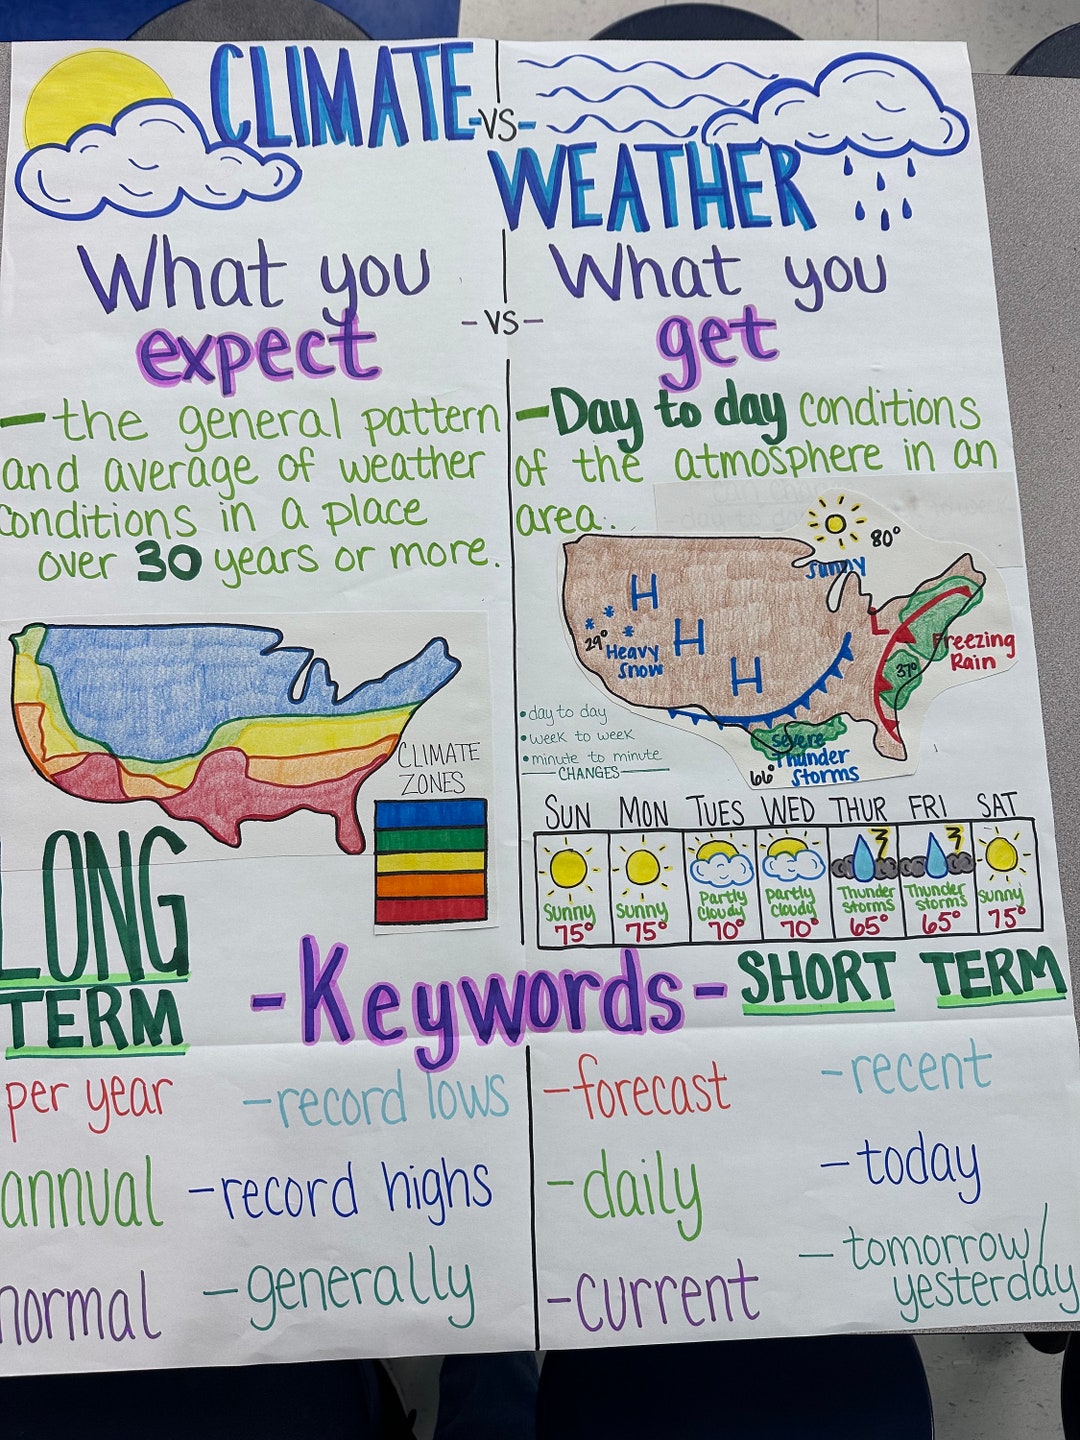 CLIMATE -VS- WEATHER
What you expect
-VS-
What you get
- the general pattern
and average of weather
conditions in a place
over 30 years or more.
- Day to day conditions
of the atmosphere in an
area.
CLIMATE
ZONES
LONG
TERM
80°
Sunny
H
H
H
29°
Heavy
Snow
L
Freezing
Rain
37°
Severe
Thunder
storms
66°
• day to day
• week to week
• minute to minute
CHANGES
SUN MON TUES WED THUR FRI SAT
Sunny
75°
Sunny
75°
Partly
Cloudy
70°
Partly
Cloudy
70°
Thunder
storms
65°
Thunder
storms
65°
Sunny
75°
SHORT TERM
-Keywords-
per year
annual
normal
-record lows
-record highs
-generally
-forecast
-daily
-current
-recent
-today
-tomorrow/
yesterday